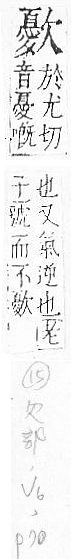 歐 於尤切
音憂嘅
也又氣逆也老
子號而不歐
⑮欠部,V6,
p70